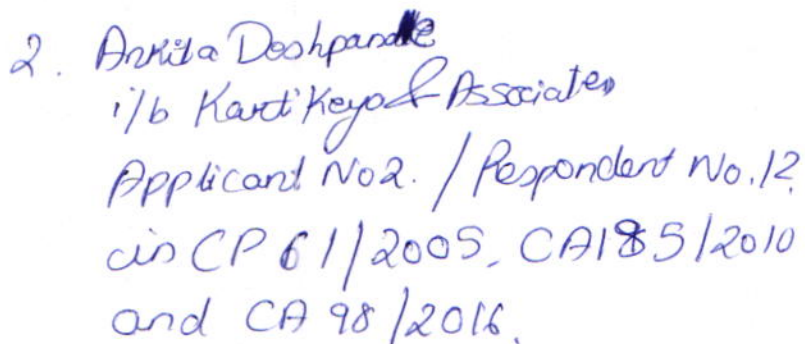 2. Ankita Deshpande
i/b Kartikeya & Associates
Applicant No2. / Respondent No.12
in CP 61/2005, CA185/2010
and CA 98/2016.